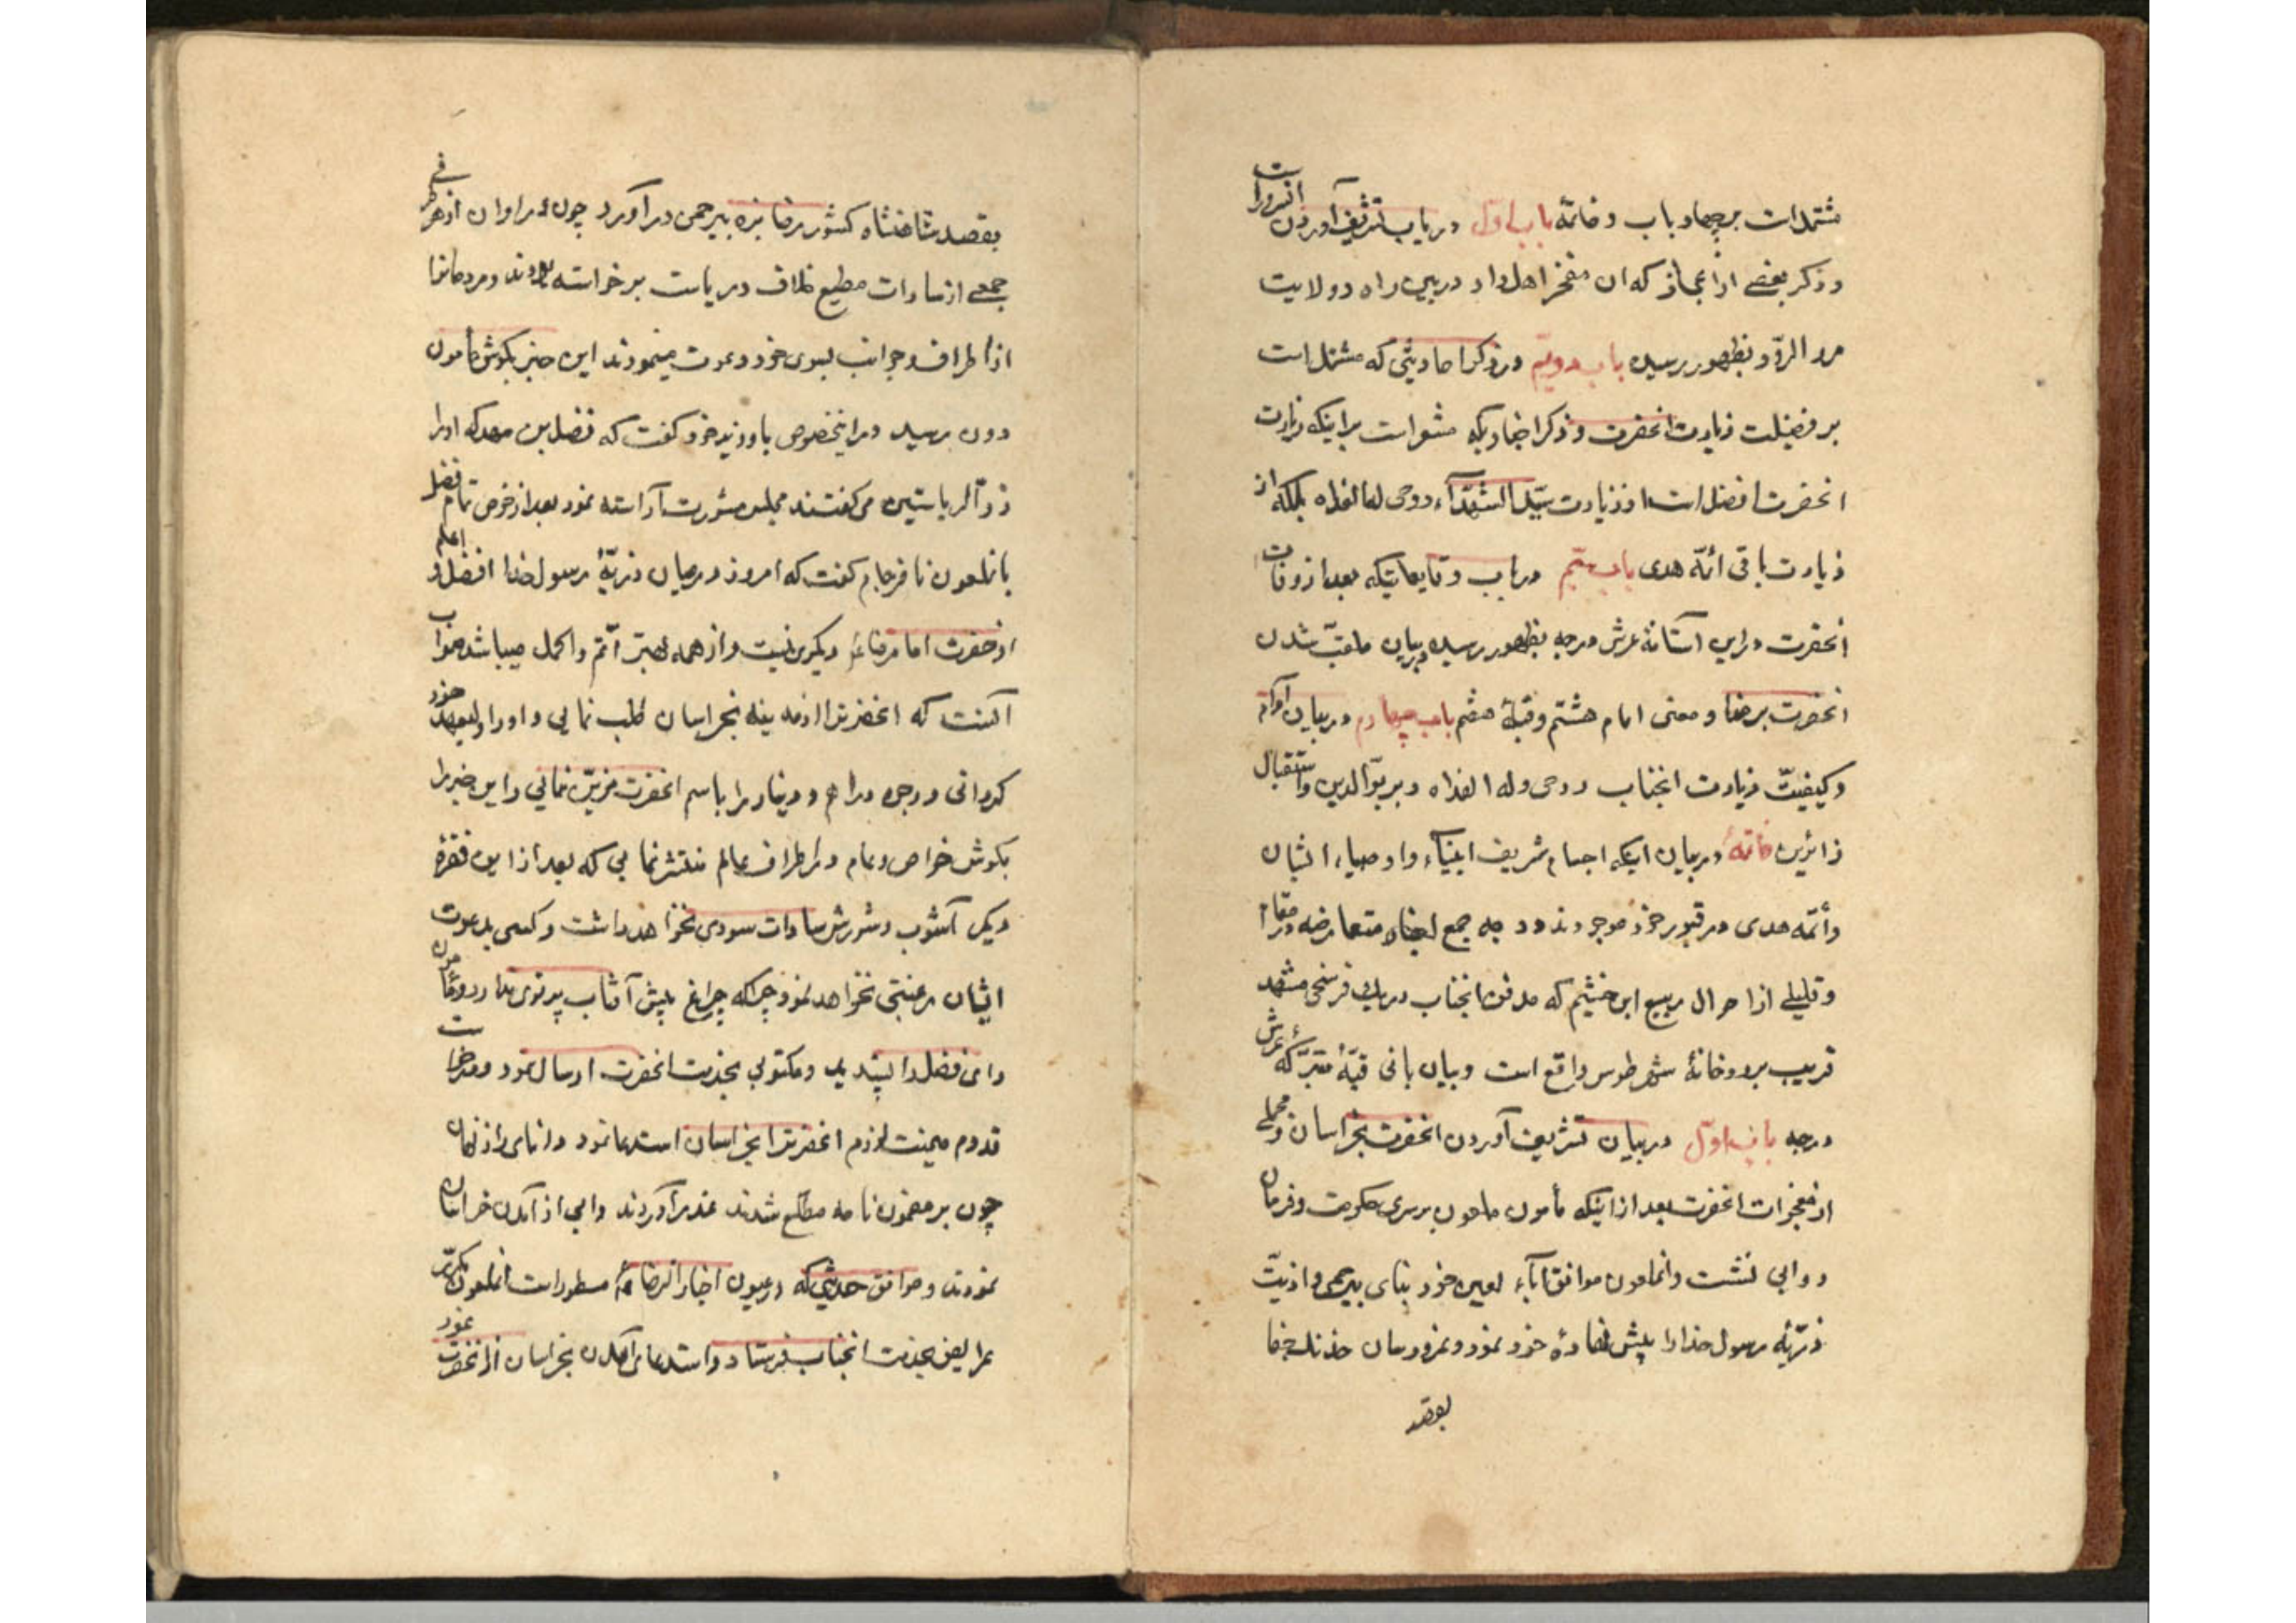 مشتمل است بر چهار باب و خاتمه باب اول در باب تشریف آوردن انسرور است
و ذکر بعضی از اعجاز که ان مفخر اهل داد در بین راه و ولایت
مرو الرّود بظهور رسیده باب دویّم در ذکر احادیثی که مشتمل است
بر فضیلت زیارت انحضرت و ذکر اخباریکه مشعر است بر اینکه زیارت
انحضرت افضل است از زیارت سیّد الشهدآء روحی لها الفداه بلکه از
زیارت باقی ائمّه هدی باب سیّم در باب وقایعاتیکه بعد از وفات
انحضرت در این آستانهٔ عرش درجه بظهور رسیده و بیان ملقّب شدن
انحضرت برضا و معنی امام هشتم و قبلهٔ هفتم باب چهارم در بیان آداب
و کیفیّت زیارت انجناب روحی و له الفداه و بر بوّ الدین و استقبال
زائرین خاتمهٔ در بیان اینکه اجسام شریف انبیآء و اوصیاء ایشان
و أئمّه هدی در قبور خود موجودند و وجه جمع اخبار متعارضه در مقام
و قلیلی از احوال ربیع ابن خثیم که مدفن انجناب در یک فرسخی مشهد
قریب برودخانهٔ شهر طوس واقع است و بیان بانی قبّهٔ متبرّکهٔ عرش
درجه باب اوّل در بیان تشریف آوردن انحضرت بخراسان و مجملی
از معجزات انحضرت بعد از اینکه مأمون ملعون بر سریر حکومت و فرمان
روایی نشست و انملعون موافق آبآء لعین خود بنای بیرحمی و اذیّت
ذرّیهٔ رسول خدا را پیش نهادهٔ خود نمود و نمرود سان خدنک جفا
بقصد
بقصد شاهنشاه کشور رضا بزه بیرحمی در آورد چون در اوان از هر طرفی
جمعی از سادات مطیع خلاف در یاست برخواسته بودند و مردمانرا
از اطراف و جوانب بسوی خود دعوت مینمودند این خبر بکوش مأمون
دون رسید در اینخصوص با وزیر خود کفت که فضل بن سهل که او را
ذو الریاستین می کفتند مجلس مشورت آراسته نمود بعد از خوض تمام فضل
بانملعون نافرجام کفت که امروز در میان ذریّهٔ رسول خدا افضل و اعلم
از حضرت امام رضا ع دیکری نیست و از همه بهتر اتّم و اکمل میباشد صواب
آنست که انحضرترا از مدینه بخراسان طلب نمایی و او را ولیعهد خود
کردانی و وجوه دراهم و دینار را باسم انحضرت مزیّن نمایی و این خبر را
بکوش خواص و عام در اطراف عالم منتشر نمایی که بعد از این فقره
دیکر آشوب و شورش سادات سودی نخواهد داشت و کسی بدعوت
ایشان رغبتی نخواهد نمود چراکه چراغ پیش آفتاب پرتوی ندارد و مأمون
رای فضل را پسندید و مکتوبی بخدمت انحضرت ارسال نمود و درخواست
قدوم میمنت لزوم انحضرترا بخراسان استدعا نمود و انامای زمان
چون بر مضمون نامه مطلع شدند عذر آوردند و ابی از آمدن خراسان
نمودند و موافق حدیثی که در عیون اخبار الرضا ع مسطور است انملعون مکرّر
عرایض بخدمت انجناب فرستاد و استدعای آمدن بخراسان از انحضرت نمود